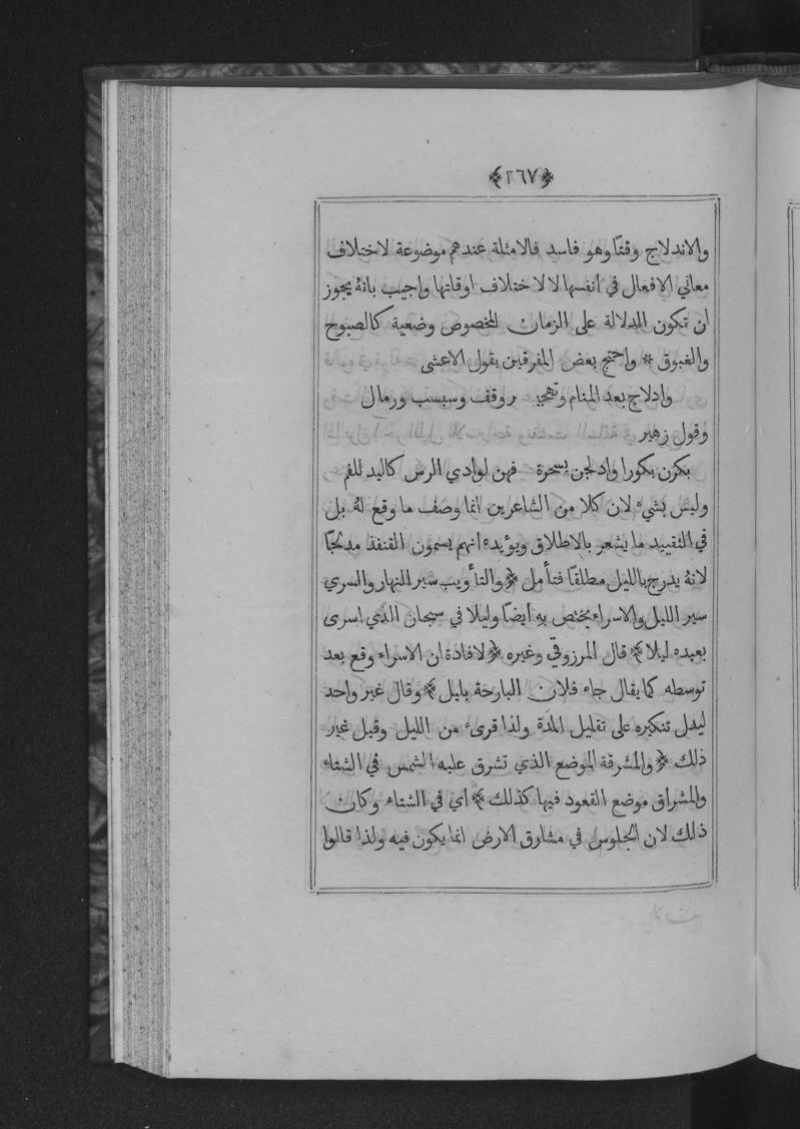 ﴿٢٦٧﴾
والاندلاج وقتًا وهو فاسد فالامثلة عندهم موضوعة لاختلاف
معاني الافعال في انفسها لا لاختلاف اوقاتها واجيب بانهُ يجوز
ان تكون الدلالة على الزمان المخصوص وضعية كالصبوح
والغبوق * واحتج بعض المفرقين بقول الاعشى
وادلاج بعد المنام وتهجيـ ـر وقف وسبسب ورمال
وقول زهير
بكرن بكورا وادلجن بسحرة فهن لوادي الرس كاليد للفم
وليس بشيء لان كلا من الشاعرين انما وصف ما وقع لهُ بل
في التقييد ما يشعر بالاطلاق ويؤيده انهم يسمون القنفذ مدلجًا
لانهُ يدرج بالليل مطلقًا فتأمل ﴿والتأويب سير النهار والسري
سير الليل والاسراء يختص به ايضًا وليلا في سبحان الذي اسرى
بعبده ليلا﴾ قال المرزوقي وغيره ﴿لافادة ان الاسراء وقع بعد
توسطه كما يقال جاء فلان البارحة بليل﴾ وقال غير واحد
ليدل تنكيره على تقليل المدة ولذا قرىء من الليل وقيل غير
ذلك ﴿والمشرقة الموضع الذي تشرق عليه الشمس في الشتاء
والمشراق موضع القعود فيها كذلك﴾ اي في الشتاء وكان
ذلك لان الجلوس في مشارق الارض انما يكون فيه ولذا قالوا